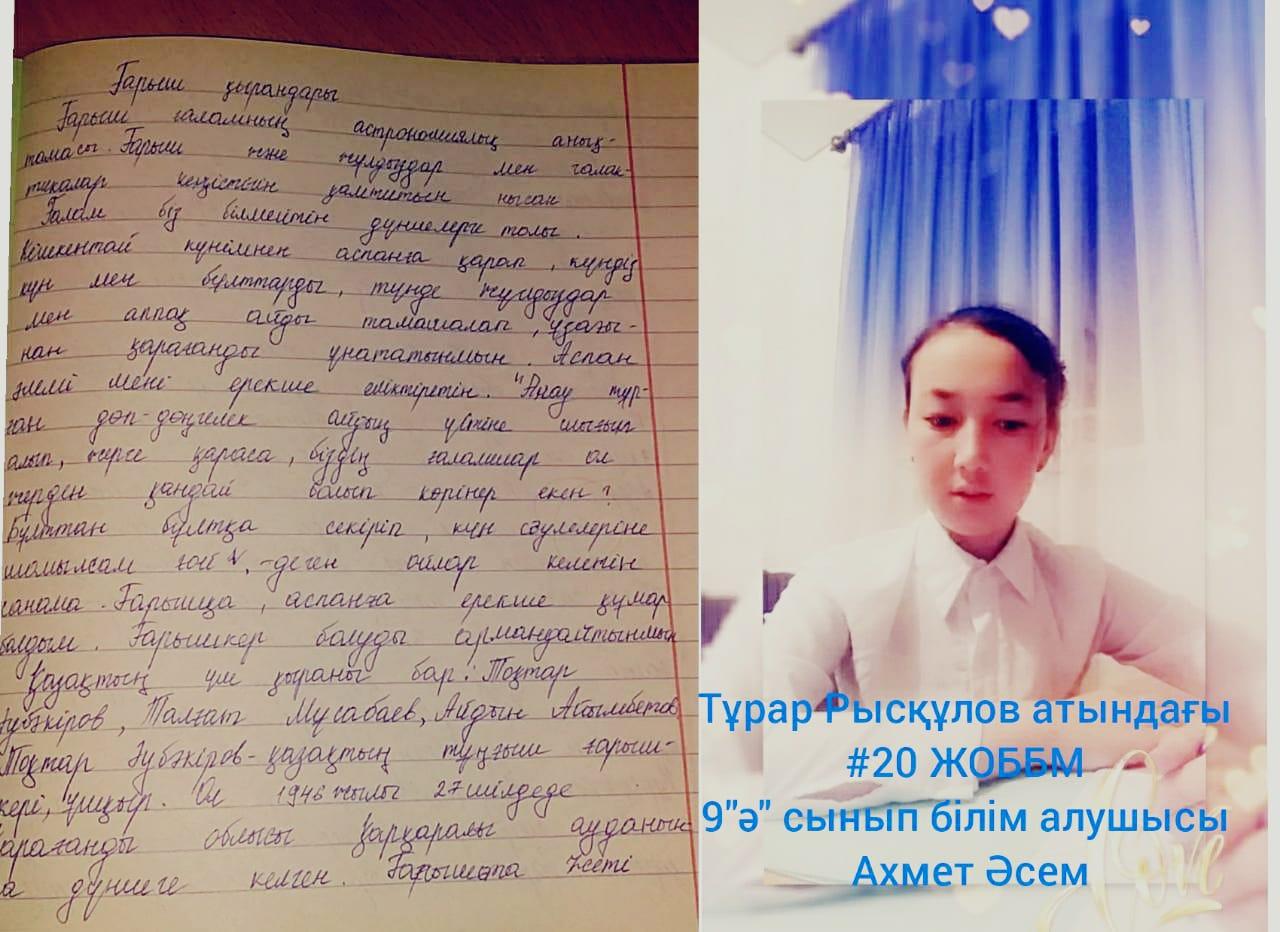 Ғарыш қырандары
Ғарыш ғаламның астрономиялық анық-
тамасы. Ғарыш және жұлдыздар мен галак-
тикалар кеңістігін қамтитын нысан
Ғалам біз білмейтін дүниелерге толы.
Кішкентай күнімнен аспанға қарап, күндіз
күн мен бұлттарды, түнде жұлдыздар
мен аппақ айды тамашалап, ұзағы-
нан қарағанды ұнататынмын. Аспан
әлемі мені ерекше еліктіретін. "Анау тұр-
ған дөп-дөңгелек айдың үстіне шығып
алып, жерге қараса, біздің ғаламшар ол
жерден қандай болып көрінер екен?
Бұлттан бұлтқа секіріп, күн сәулелеріне
шомылсам ғой", -деген ойлар келетін
санама. Ғарышқа, аспанға ерекше құмар
болдым. Ғарышкер болуды армандайтынмын
Қазақтың үш қыраны бар: Тоқтар
Әубәкіров, Талғат Мұсабаев, Айдын Айымбетов
Тоқтар Әубәкіров-қазақтың тұңғыш ғарыш-
кері, ұшқыр. Ол 1946 жылы 27 шілдеде
Қарағанды облысы Қарқаралы ауданын
а дүниеге келген. Ғарышта жеті
Тұрар Рысқұлов атындағы
#20 ЖОББМ
9"ә" сынып білім алушысы
Ахмет Әсем
Love